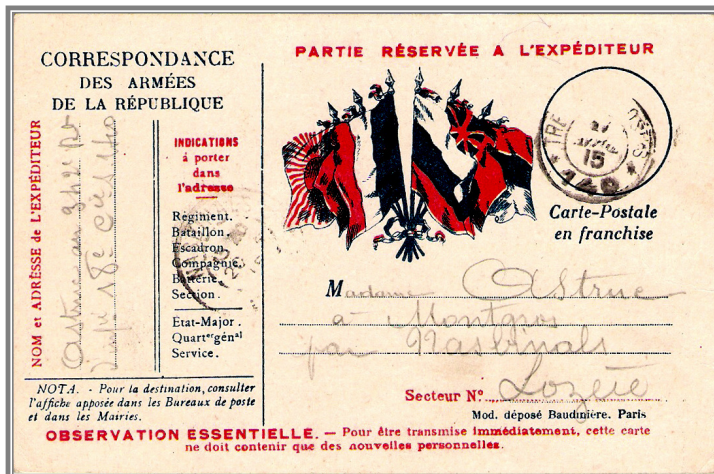 PARTIE RÉSERVÉE A L'EXPÉDITEUR
CORRESPONDANCE
DES ARMÉES
DE LA RÉPUBLIQUE
NOM et ADRESSE de L'EXPÉDITEUR
Astruc au
18e Cie
INDICATIONS
à porter
dans
l'adresse
Régiment.
Bataillon.
Escadron.
Compagnie.
Batterie.
Section.
Etat-Major.
Quartᵉʳ génᵃˡ
Service.
NOTA. - Pour la destination, consulter
l'affiche apposée dans les Bureaux de poste
et dans les Mairies.
15
* 140 *
Carte-Postale
en franchise
Madame Astruc
à Montgros
par Nasbinals
Lozère
Secteur N°
Mod. déposé Baudinière. Paris
OBSERVATION ESSENTIELLE. — Pour être transmise immédiatement, cette carte
ne doit contenir que des nouvelles personnelles.